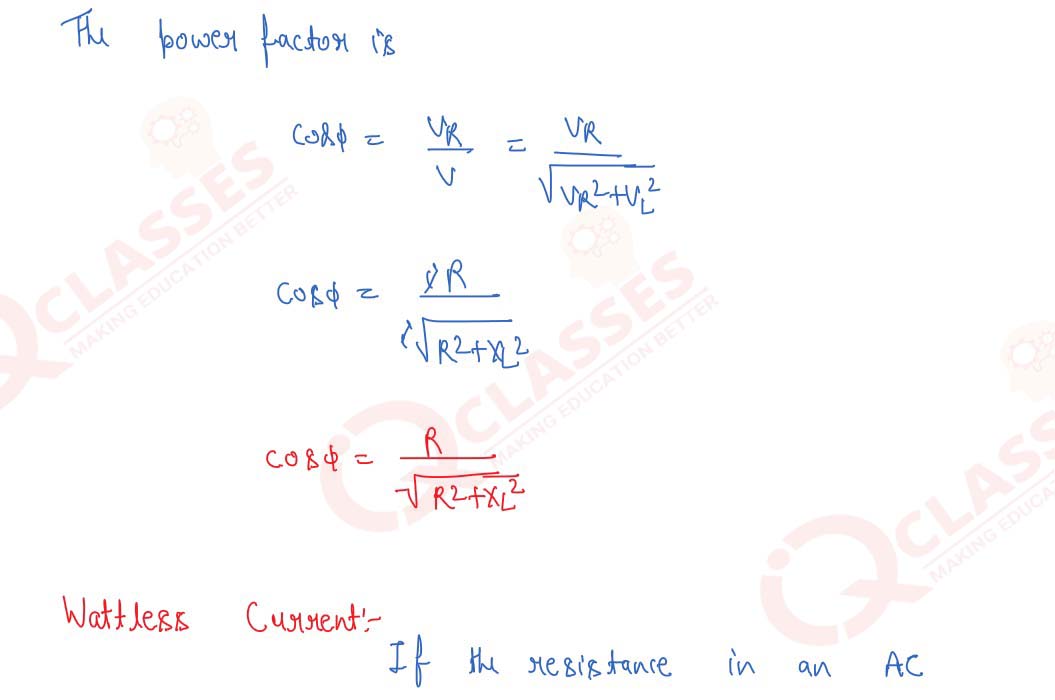 The power factor is
cosϕ = V_R / V = V_R / √(V_R² + V_L²)
cosϕ = iR / i√(R² + X_L²)
cosϕ = R / √(R² + X_L²)
Wattless Current:-
If the resistance in an AC
iQ CLASSES
MAKING EDUCATION BETTER
iQ CLASSES
MAKING EDUCATION BETTER
iQ CLASSES
MAKING EDUCATION BETTER